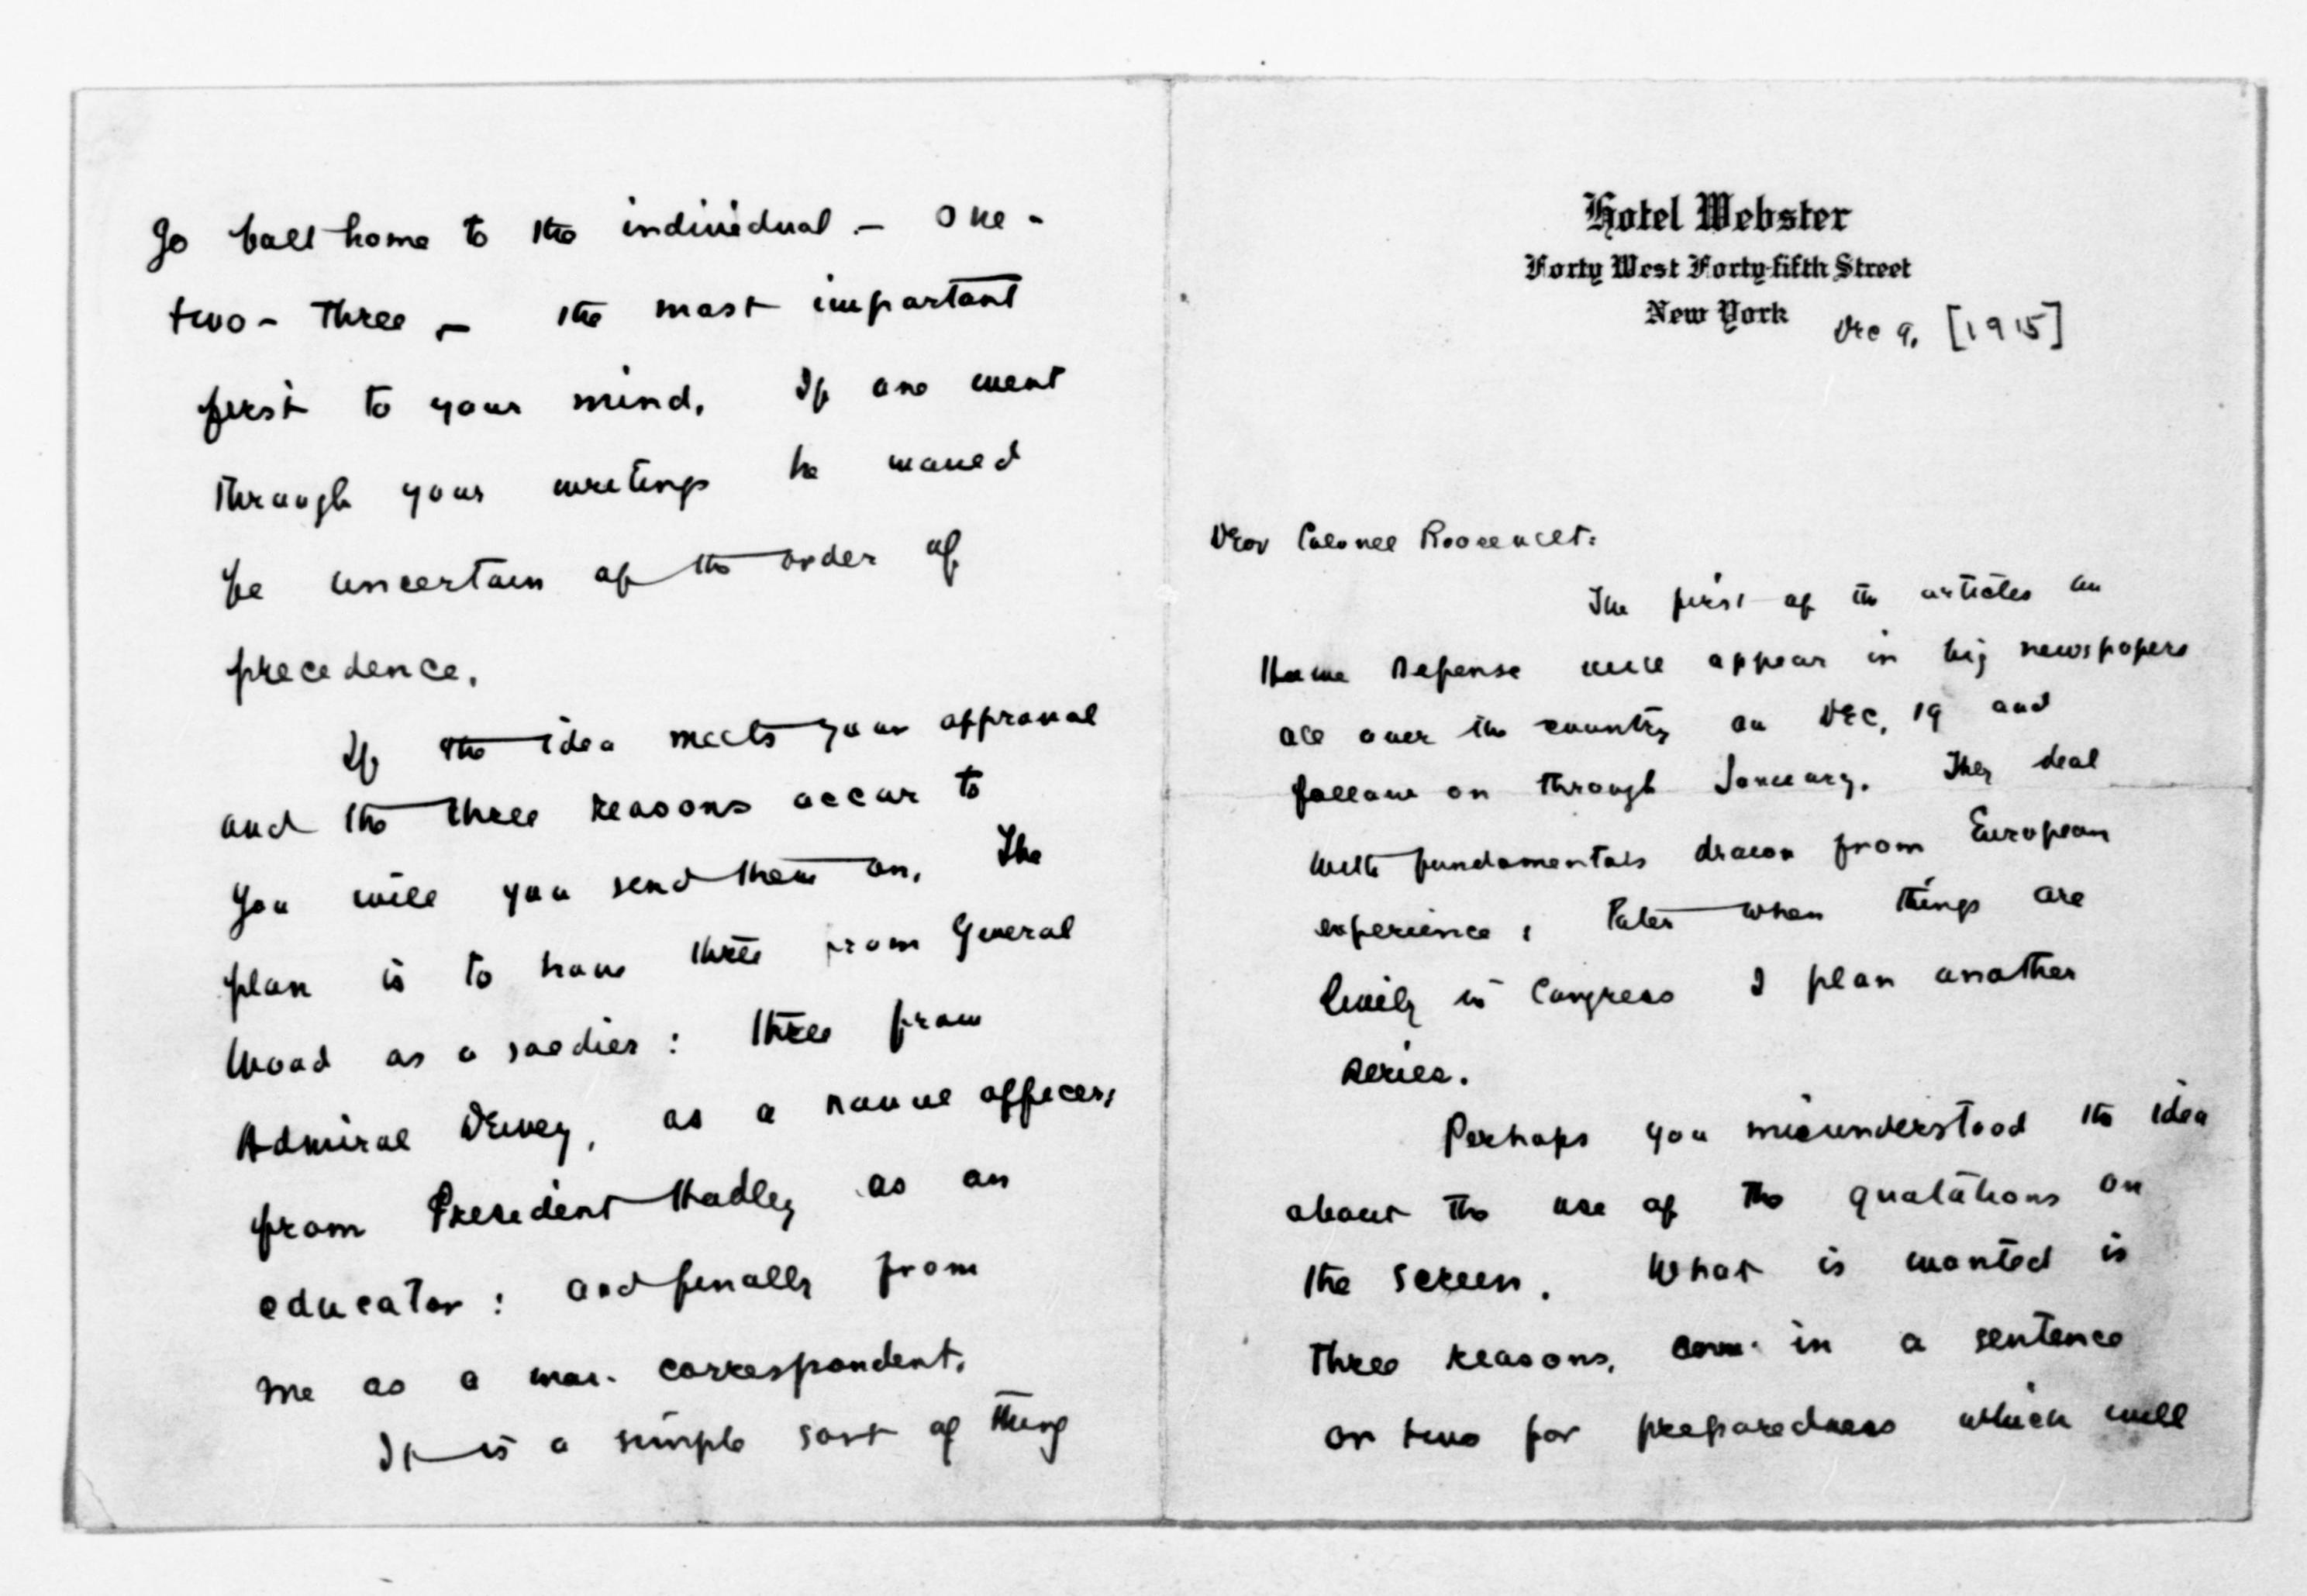 Hotel Webster
Forty West Forty-fifth Street
New York
Dec 9, [1915]
Dear Colonel Roosevelt:
The first of the articles on
Home Defense will appear in big newspapers
all over the country on Dec, 19 and
follow on through January. They deal
with fundamentals drawn from European
experience; Later when things are
lively in Congress I plan another
series.
Perhaps you misunderstood the idea
about the use of the quotations on
the screen. What is wanted is
three reasons, in a sentence
or two for preparedness which will
go home to the individual - one -
two - three - the most important
first to your mind. If one went
through your writings he would
be uncertain of the order of
precedence.
If the idea meets your approval
and the three reasons occur to
you will you send them on. The
plan is to have three from General
Wood as a soldier: three from
Admiral Dewey, as a naval officer;
from President Hadley as an
educator: and finally from
me as a war correspondent.
It is a simple sort of thing